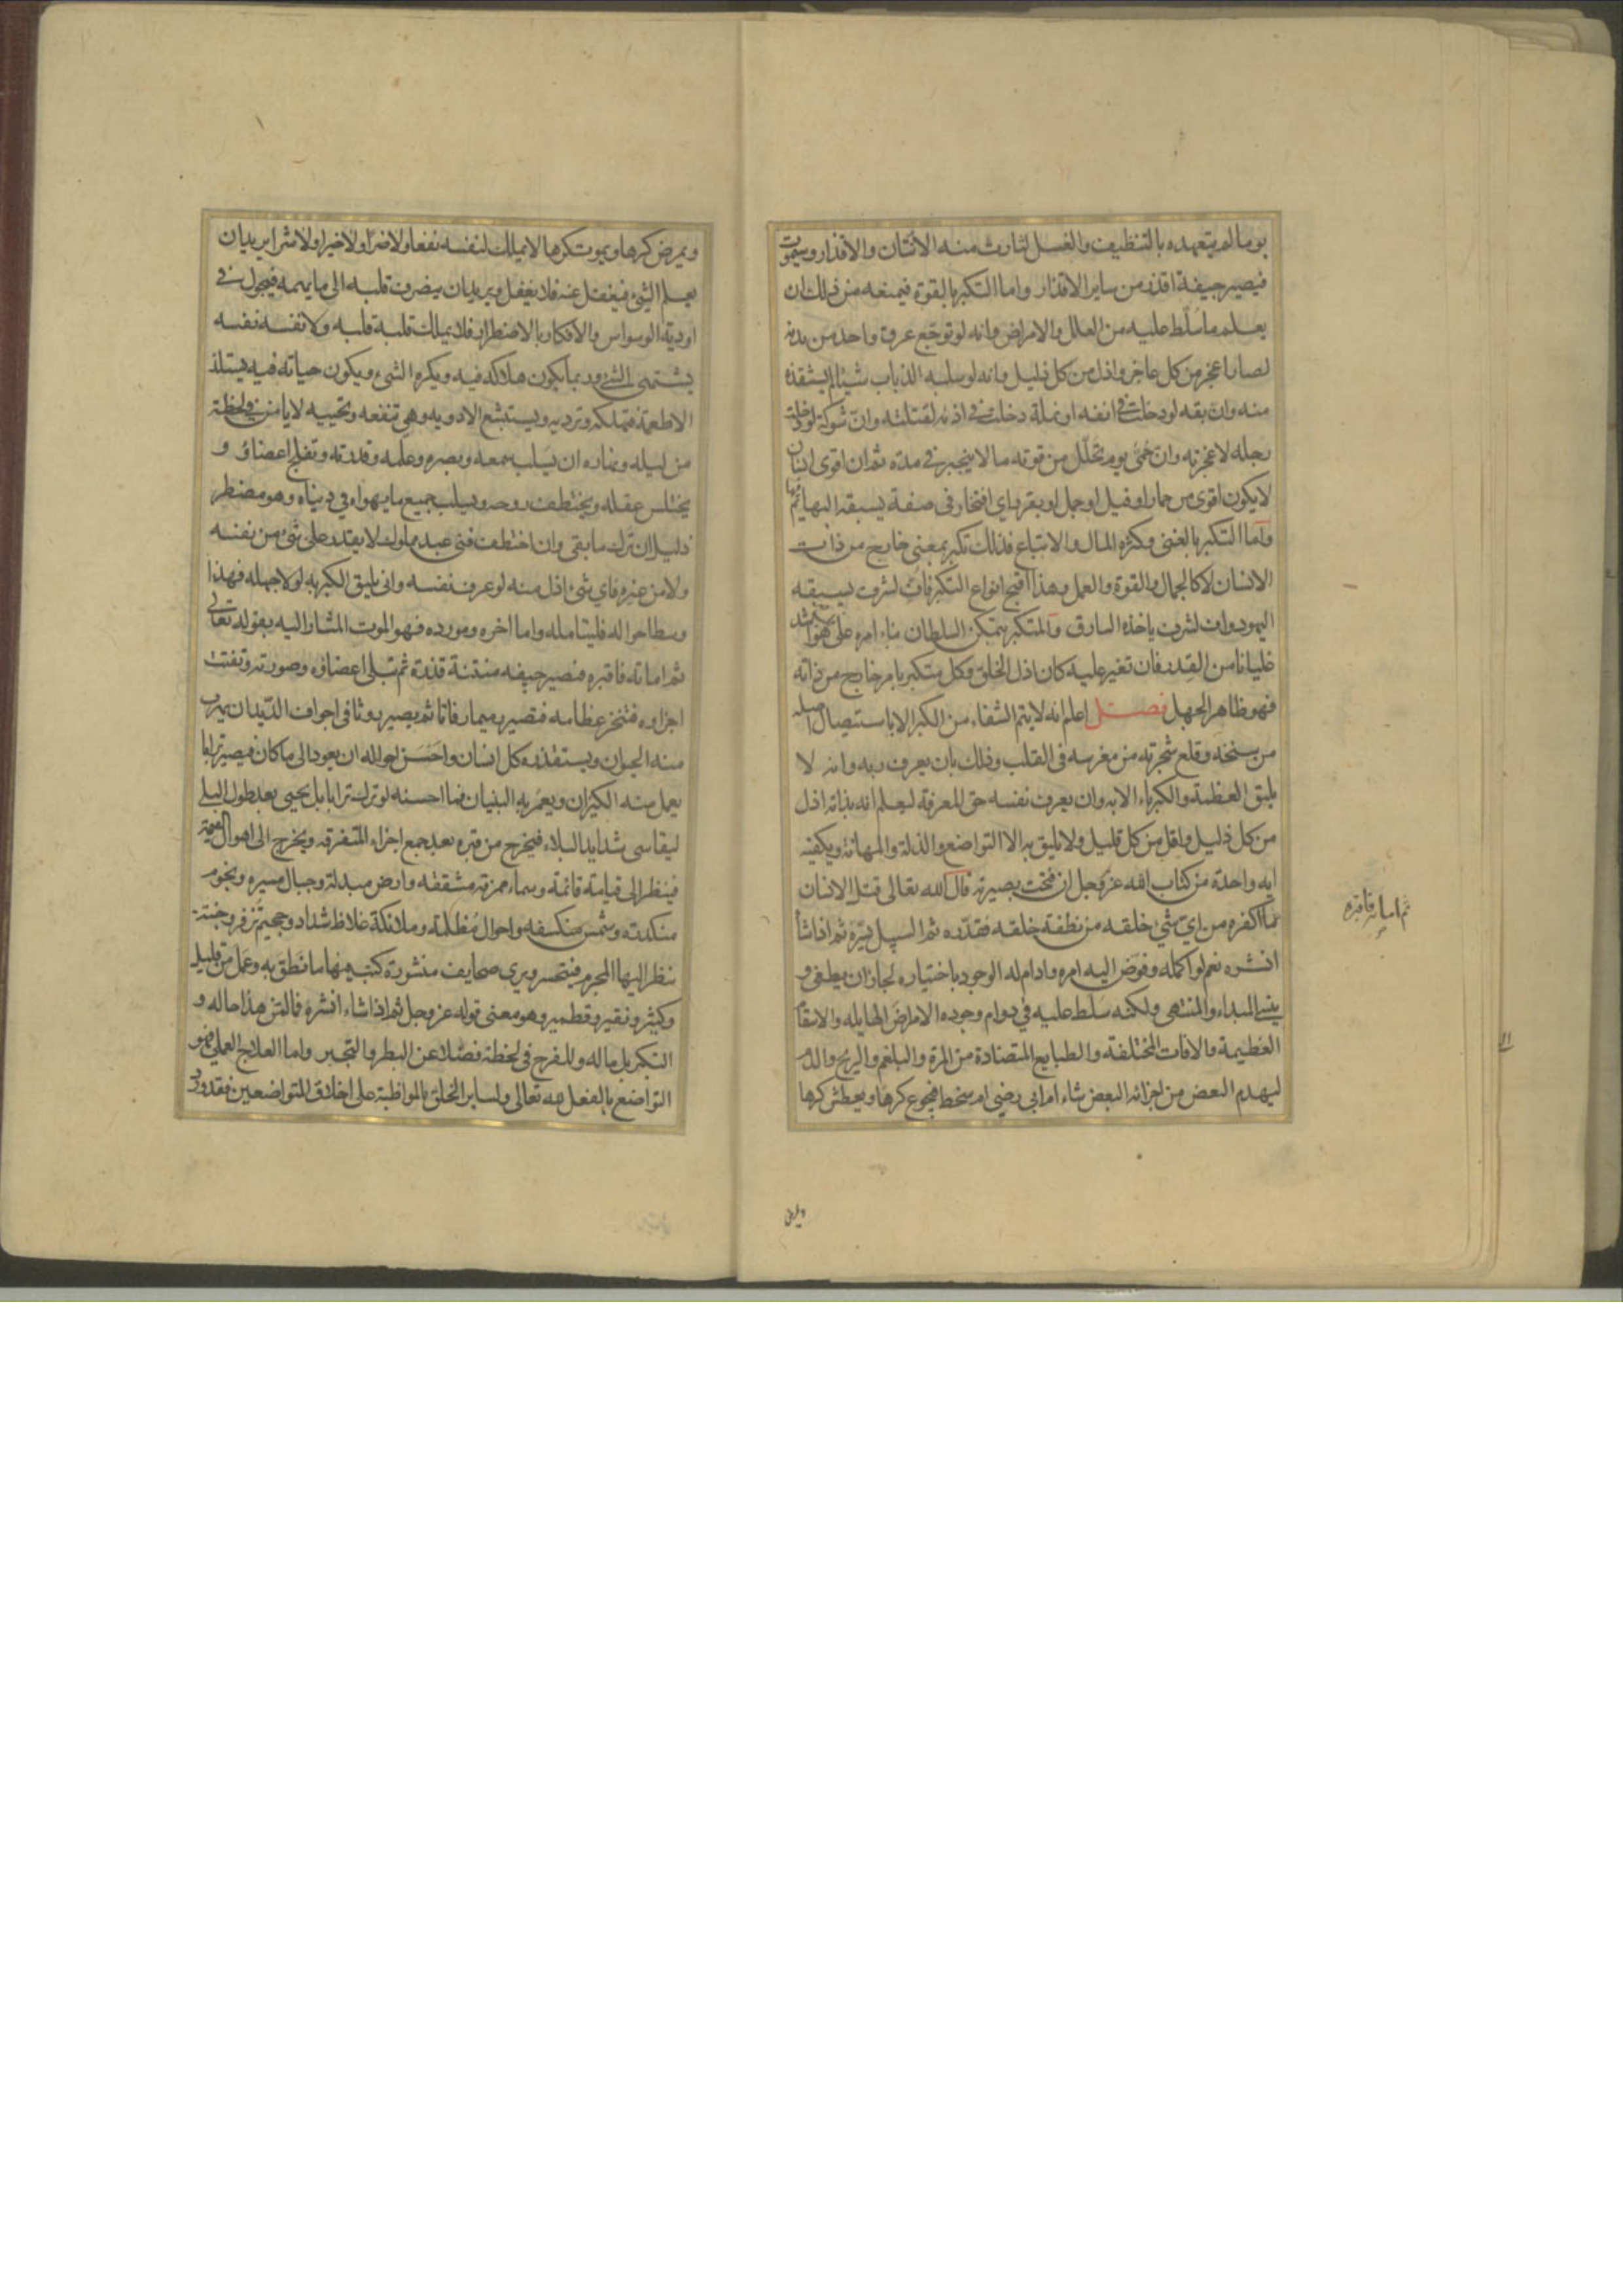 يوما لم يتعهده بالتنظيف والغسل لثارت منه الانتان والاقذار وسيموت
فيصير جيفة اقذر من ساير الاقذار واما التكبر بالقوة فيمنعه من ذلك ان
يعلم ما سلّط عليه من العلل والامراض وانه لو توجّع عرق واحد من بدنه
لصار اعجز من كل عاجز واذل من كل ذليل وانه لو سلبه الذباب شيئا لم يستنقذه
منه وان بقه لو دخلت في انفه او نملة دخلت في اذنه لقتلته وان شوكة لو دخلت
رجله لاعجزته وان حمّى يوم تحلّل من قوته ما لا ينجبر في مدّه ثم ان اقوى انسان
لا يكون اقوى من حمار او فيل او جمل او بقر واي افتخار في صفة يسبقه البهائم بها
واما التكبر بالغنى وكثره المال والاتباع فذلك تكبر بمعنى خارج من ذات
الانسان لا كالجمال والقوة والعمل وهذا اقبح انواع التكبر فاف لشرف يسبقه
اليهود واف لشرف ياخذه السارق والمتكبر بتمكن السلطان بناء امره على هو اشد
غليانا من القدر فان تغير عليه كان اذل الخلق وكل متكبر بامر خارج من ذاته
فهو ظاهر الجهل فصل اعلم انه لا يتم الشفاء من الكبر الا باستيصال اصله
من سنخه وقلع شجرته من مغرسه في القلب وذلك بان يعرف ربه وانه لا
يليق العظمة والكبرياء الا به وان يعرف نفسه حق المعرفة ليعلم انه بذاته اذل
من كل ذليل واقل من كل قليل ولا يليق به الا التواضع والذلة والمهانة ويكفيه
ايه واحدة من كتاب الله عز وجل ان فتحت بصيرته قال الله تعالى قتل الانسان
ما اكفره من اي شيء خلقه من نطفة خلقه فقدّره ثم السبيل يسّره ثم اذا شا
انشره نعم لو اكمله وفوّض اليه امره وادام له الوجود باختياره لجاز ان يطغى و
ينسى المبداء والمنتهى ولكنه سلّط عليه في دوام وجوده الامراض الهايله والاسقام
العظيمة والافات المختلفة والطبايع المتضادة من المرة والبلغم والريح والدم
ليهدم البعض من اجزائه البعض شاء ام ابى رضى ام سخط فيجوع كرها ويعطش كرها
ثم اماته فاقبره
ويمرض
ويمرض كرها ويموت كرها لا يملك لنفسه نفعا ولا ضرّا ولا خيرا ولا شرا يريد ان
يعلم الشئ فيغفل عنه فلا يغفل ويريد ان يصرف قلبه الى ما يهمه فيجول في
اودية الوسواس والافكار بالاضطرار فلا يملك قلبه قلبه ولا نفسه نفسه
يشتهى الشئ وربما يكون هلاكه فيه ويكره الشئ ويكون حياته فيه يستلذ
الاطعمة فتهلكه وترديه ويستبشع الادويه وهي تنفعه وتحييه لا يامن في لحظة
من ليله ونهاره ان يسلب سمعه وبصره وعلمه وقدرته وتفلج اعضاؤه و
يختلس عقله ويختطف روحه ويسلب جميع ما يهواه في دنياه وهو مضطر
ذليل ان ترك ما بقي وان اختطف فنى عبد مملوك لا يقدر على شئ من نفسه
ولا من غيره فاي شئ اذل منه لو عرف نفسه وانى يليق الكبر به لولا جهله فهذا
وسط احواله فليتامله واما اخره ومورده فهو الموت المشار اليه بقوله تعالى
ثم اماته فاقبره فيصير جيفه منتنة قذرة ثم تبلى اعضاؤه وصورته وتفتت
اجزاوه فتنخر عظامه فتصير رميما رفاتا ثم يصير روثا في اجواف الدّيدان يهرب
منه الحيوان ويستقذره كل انسان واحسن احواله ان يعود الى ما كان فيصير ترابا
يعمل منه الكيزان ويعمّر به البنيان فما احسنه لو ترك ترابا بل يحيى بعد طول البلى
ليقاسى شدايد البلاء فيخرج من قبره بعد جمع اجزاء المتفرقه ويخرج الى اهوال القيمة
فينظر الى قيامة قائمة وسماء ممزقة مشققه وارض مبدلة وجبال مسيره ونجوم
منكدره وشمس منكسفه واحوال مظلمة وملائكة غلاظ شداد وجحيم تزفر وجنة
ينظر اليها المجرم فيتحسر ويرى صحايف منشورة كتب فيها ما نطق به وعمل من قليل
وكثير ونقير وقطمير وهو معنى قوله عز وجل ثم اذا شاء انشره فما لمن هذا حاله و
التكبر بل ماله وللفرح في لحظة فضلا عن البطر والتجبر واما العلاج العملي فهو
التواضع بالفعل لله تعالى ولساير الخلق بالمواظبة على اخلاق المتواضعين فقد ورد